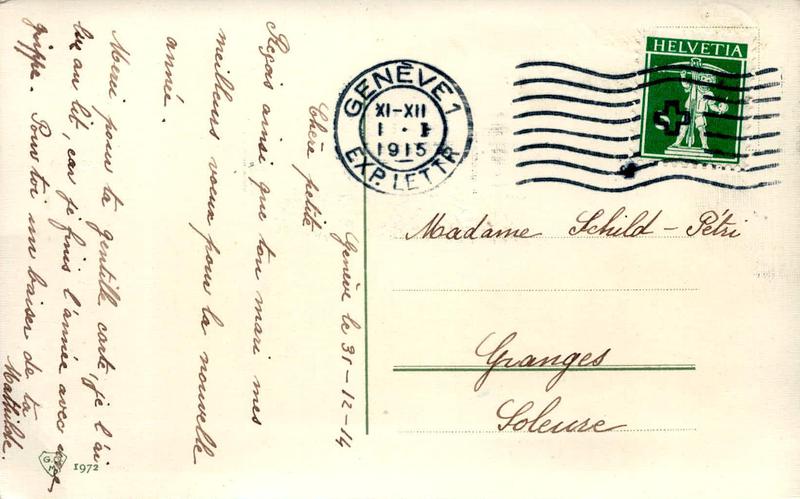 Genève le 31-12-14
Chère petite
Reçois ainsi que ton mari mes
meilleurs vœux pour la nouvelle
année.
Merci pour ta gentille carte, je l'ai
lue au lit, car je finis l'année avec une
grippe. Pour toi un baiser de ta
Mathilde.
GENÈVE 1
XI-XII
1 . I
1915
EXP. LETTR
HELVETIA
Madame Schild-Pétri
Granges
Soleure
1972